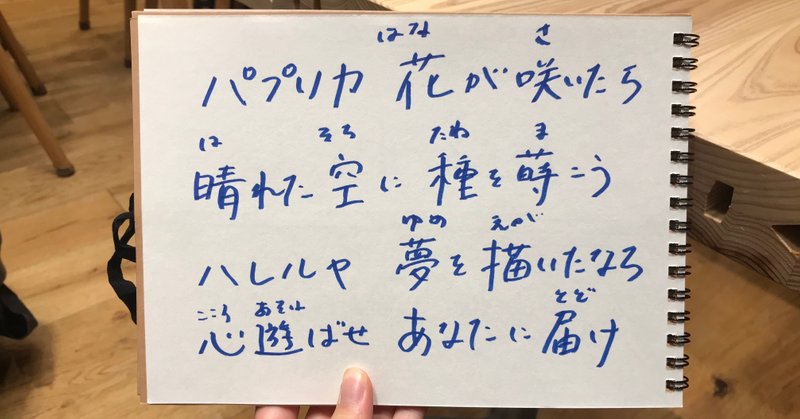 はな さ
パプリカ 花が咲いたら
は そら たね ま
晴れた空に種を蒔こう
ゆめ えが
ハレルヤ 夢を描いたなら
こころ あそ とど
心遊ばせ あなたに届け